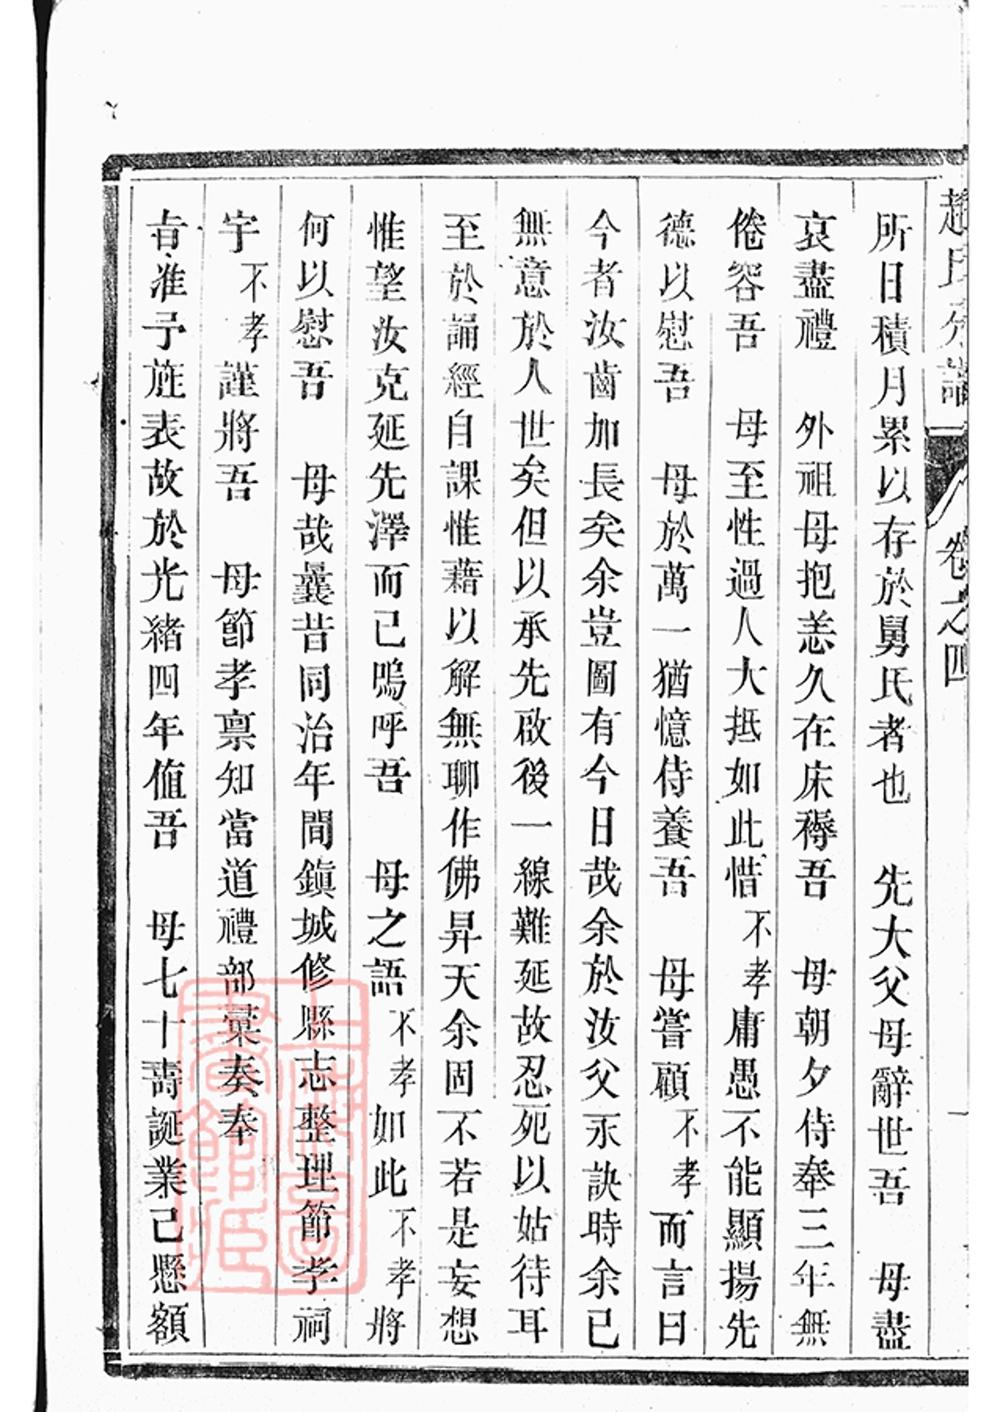 趙氏分譜 卷之四
所日積月累以存於舅氏者也 先大父母辭世吾 母盡
哀盡禮 外祖母抱恙久在床褥吾 母朝夕侍奉三年無
倦容吾 母至性過人大抵如此惜不孝庸愚不能顯揚先
德以慰吾 母於萬一猶憶侍養吾 母嘗顧不孝而言曰
今者汝齒加長矣余豈圖有今日哉余於汝父永訣時余已
無意於人世矣但以承先啟後一線難延故忍死以姑待耳
至於誦經自課惟藉以解無聊作佛昇天余固不若是妄想
惟望汝克延先澤而已嗚呼吾 母之語不孝如此不孝將
何以慰吾 母哉曩昔同治年間鎮城修縣志整理節孝祠
宇不孝謹將吾 母節孝禀知當道禮部彙奏奉
旨准予旌表故於光緒四年值吾 母七十壽誕業已懸額